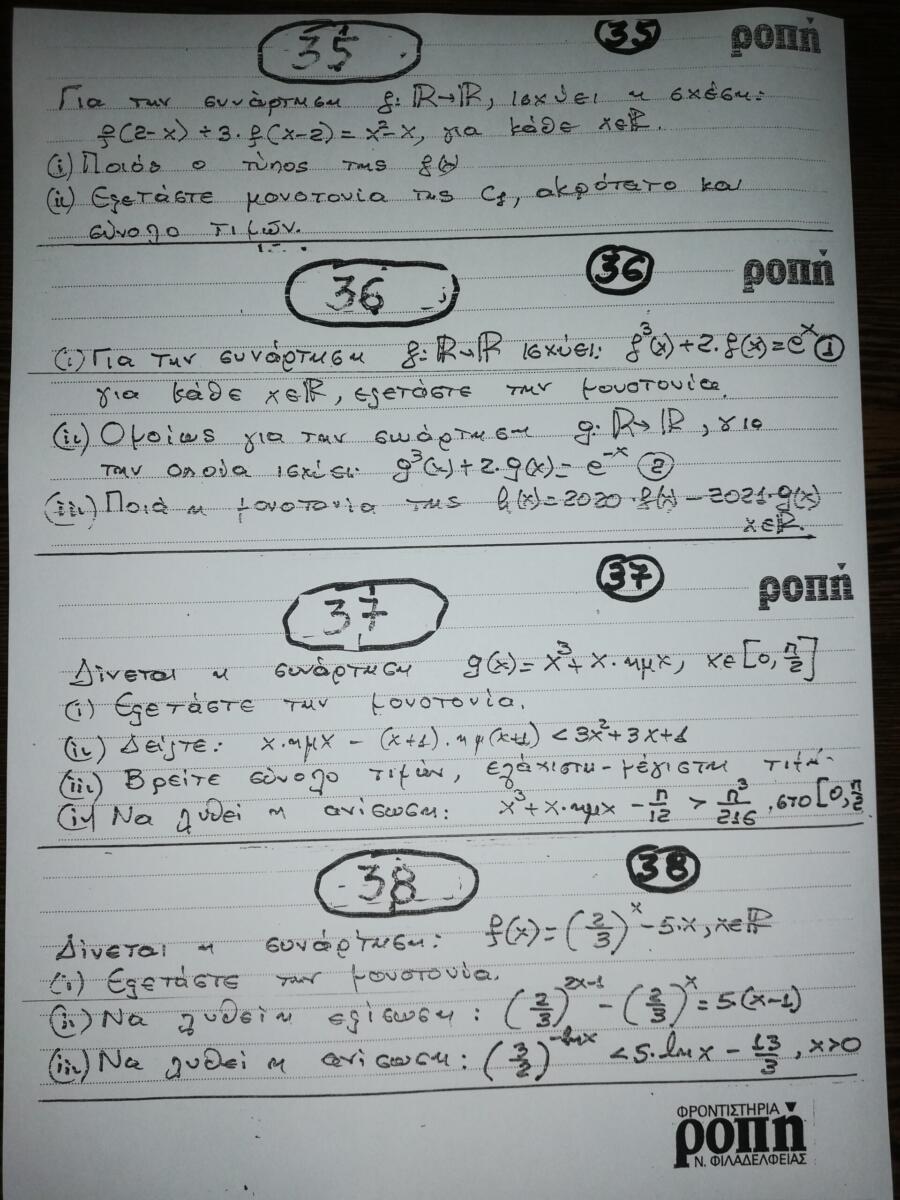 35 35 ροπή
Για την συνάρτηση f: ℝ→ℝ, ισχύει η σχέση:
f(2-x) + 3·f(x-2) = x²-x, για κάθε x∈ℝ.
(i) Ποιός ο τύπος της f(x)
(ii) Εξετάστε μονοτονία της Cf, ακρότατο και
σύνολο τιμών.
36 36 ροπή
(i) Για την συνάρτηση f: ℝ→ℝ ισχύει: f³(x) + 2·f(x) = eˣ ①
για κάθε x∈ℝ, εξετάστε την μονοτονία.
(ii) Ομοίως για την συνάρτηση g: ℝ→ℝ, για
την οποία ισχύει: g³(x) + 2·g(x) = e⁻ˣ ②
(iii) Ποιά η μονοτονία της h(x) = 2020·f(x) - 2021·g(x)
x∈ℝ.
37 37 ροπή
Δίνεται η συνάρτηση g(x) = x³ + x·ημx, x∈[0, π/2]
(i) Εξετάστε την μονοτονία.
(ii) Δείξτε: x·ημx - (x+1)·ημ(x+1) < 3x²+3x+1
(iii) Βρείτε σύνολο τιμών, ελάχιστη-μέγιστη τιμή.
(iv) Να λυθεί η ανίσωση: x³ + x·ημx - π/12 > π³/216, στο [0, π/2
38 38
Δίνεται η συνάρτηση: f(x) = (2/3)ˣ - 5·x, x∈ℝ
(i) Εξετάστε την μονοτονία.
(ii) Να λυθεί η εξίσωση: (2/3)²ˣ⁻¹ - (2/3)ˣ = 5·(x-1)
(iii) Να λυθεί η ανίσωση: (3/2)^(-lnx) < 5·lnx - 13/3, x>0
ΦΡΟΝΤΙΣΤΗΡΙΑ
ροπή
Ν. ΦΙΛΑΔΕΛΦΕΙΑΣ